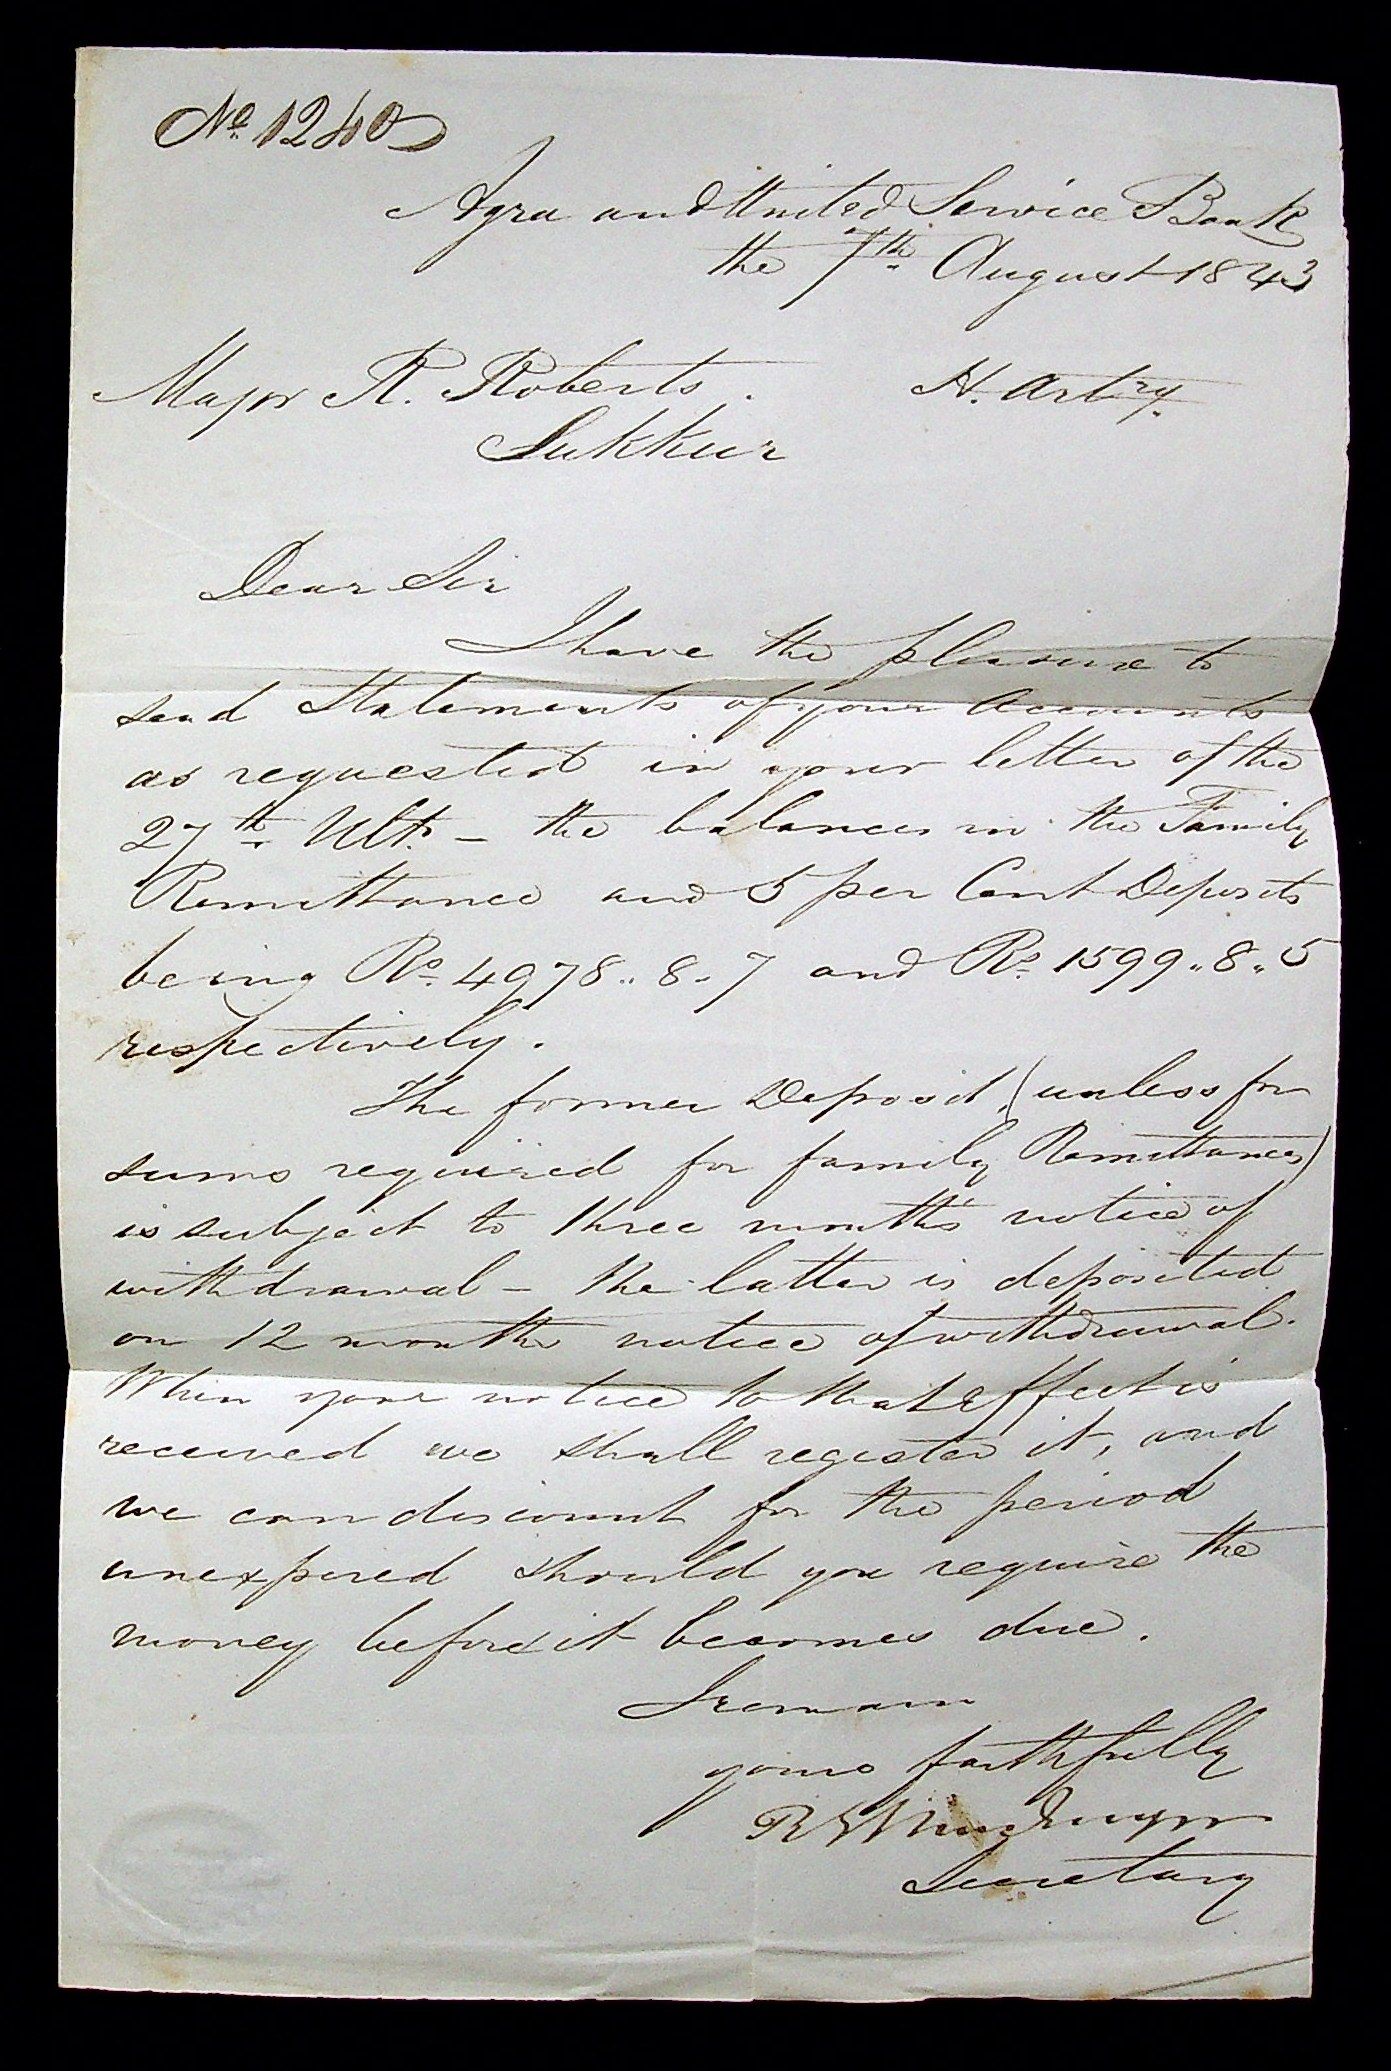 No. 1240
Agra and United Service Bank
the 7th August 1843
Major R. Roberts. H. Artry.
Sukkur
Dear Sir
I have the pleasure to
send Statements of your Accounts
as requested in your letter of the
27th Ulto. - the balances in the Family
Remittance and 5 per Cent Deposits
being Rs. 4978..8..7 and Rs. 1599..8..5
respectively.
The former Deposit, (unless for
sums required for family Remittances)
is subject to three months notice of
withdrawal - the latter is deposited
on 12 months notice of withdrawal.
When your notice to that effect is
received we shall register it, and
we can discount for the period
unexpired should you require the
money before it becomes due.
I remain
yours faithfully
Secretary